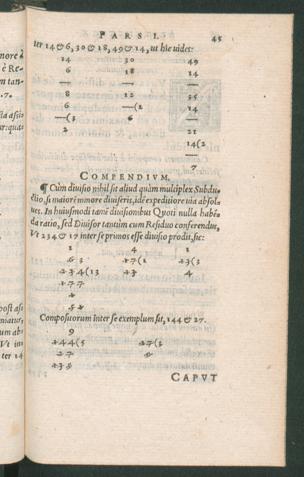 PARS I. 45
ter 14 & 6, 30 & 18, 49 & 14, ut hîc uides:
14 30 49
6 18 14
— — —
8 12 35
6 —(2 14
—(3 6 —
2 21
14(2
—
7
COMPENDIVM.
¶ Cùm diuisio nihil sit aliud quàm multiplex Subdu-
ctio, si maiorē minore diuiseris, idē expeditiore uia absol-
ues. In huiusmodi tamē diuisionibus Quoti nulla habē-
da ratio, sed Diuisor tantùm cum Residuo conferendus,
Vt 234 & 17 inter se primos esse diuisio prodit, sic:
1 4 1
6 3 17(1 13(3
234(13 13 4
177
1
Compositorum inter se exemplum sit, 144 & 27.
9
144(5 27(3
27 9
135
CAPVT